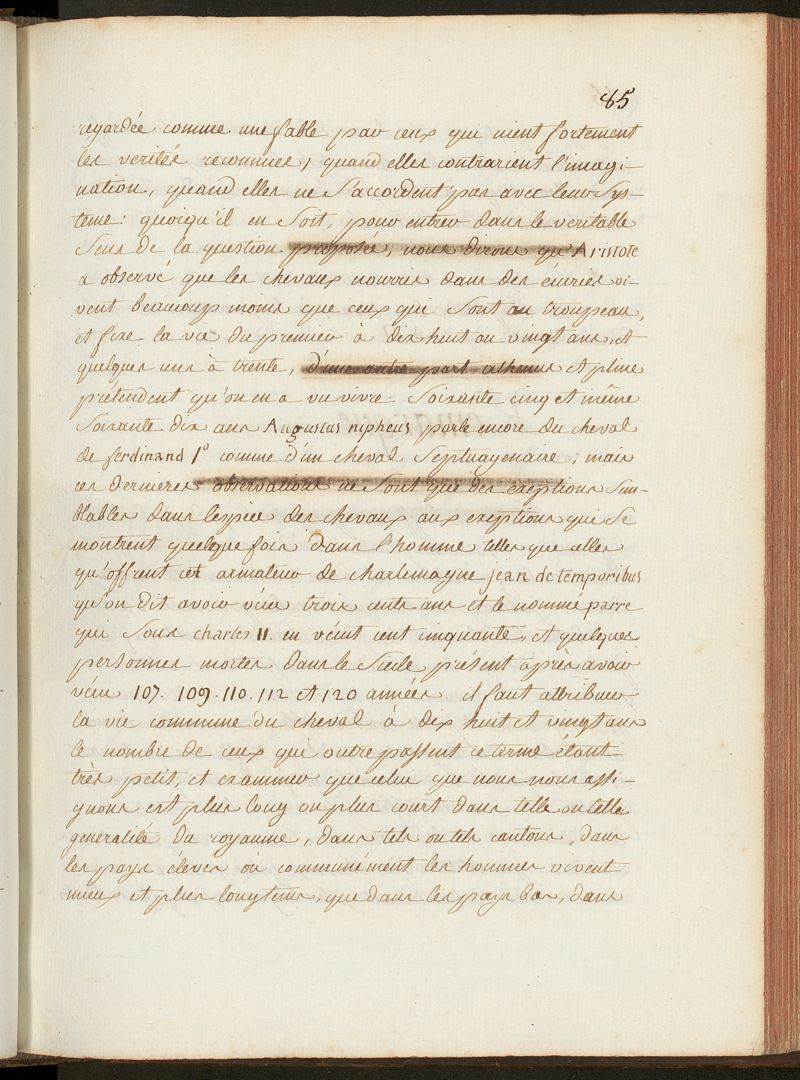 85
regardée comme une fable par ceux qui nient fortement
les verités reconnues, quand elles contrarient l'imagi-
nation, quand elles ne s'accordent pas avec leur sys-
teme: quoiqu'il en soit, pour entrer dans le veritable
sens de la question proposée, nous dirons qu'Aristote
a observé que les chevaux nourris dans des écuries vi-
vent beaucoup moins que ceux qui sont au troupeau,
et fixe la vie du premier à dix huit ou vingt ans, et
quelques uns à trente, d'une autre part athenus et pline
prétendent qu'on en a vu vivre soixante cinq et même
soixante dix ans Augustus nipheus parle encore du cheval
de ferdinand 1º comme d'un cheval septuagenaire; mais
ces dernieres observations ne sont que des exeptions sem-
blables dans l'espèce des chevaux aux exeptions qui se
montrent quelque fois dans l'homme telles que celles
qu'offrent cet armateur de charlemagne jean de temporibus
qu'on dit avoir vécu trois cents ans et le nommé parre
qui sous charles II. en vécut cent cinquante, et quelques
personnes mortes dans le siecle présent après avoir
vécu 107. 109. 110. 112 et 120 années. il faut attribuer
la vie commune du cheval à dix huit et vingt ans
le nombre de ceux qui outrepassent ce terme étant
très petit, et examiner que celui que nous nous assi-
gnons est plus long ou plus court dans telle ou telle
generalité du royaume, dans tels ou tels cantons, dans
les pays élevés où communément les hommes vivent
mieux et plus longtems, que dans les pays bas, dans